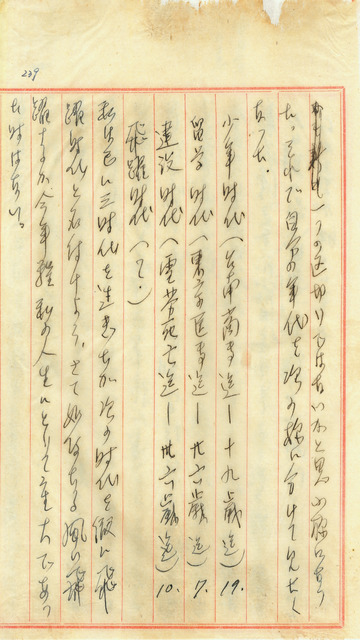 239
一つの区切りではないかと思ふ様になつ
た。それで自分の年代を次の様に分けて見たく
なつた。
少年時代（台南商専迄ー十九歳迄）19.
留学時代（東京医専迄ー廿六歳迄）7.
建設時代（雲芳死亡迄ー卅六歳迄）10.
飛躍時代（？.）
私は已に三時代を迄過たが次の時代を仮に飛
躍時代と名付けよう。さて如何なる風に飛
躍するか、今年程私の人生にとりて重大であつ
た時はない。